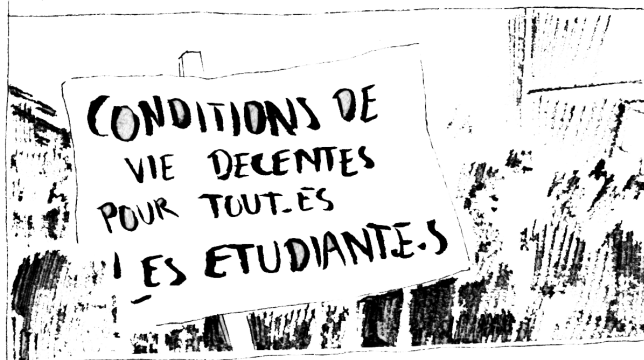 CONDITIONS DE
VIE DECENTES
POUR TOUT.ES
LES ETUDIANT.E.S